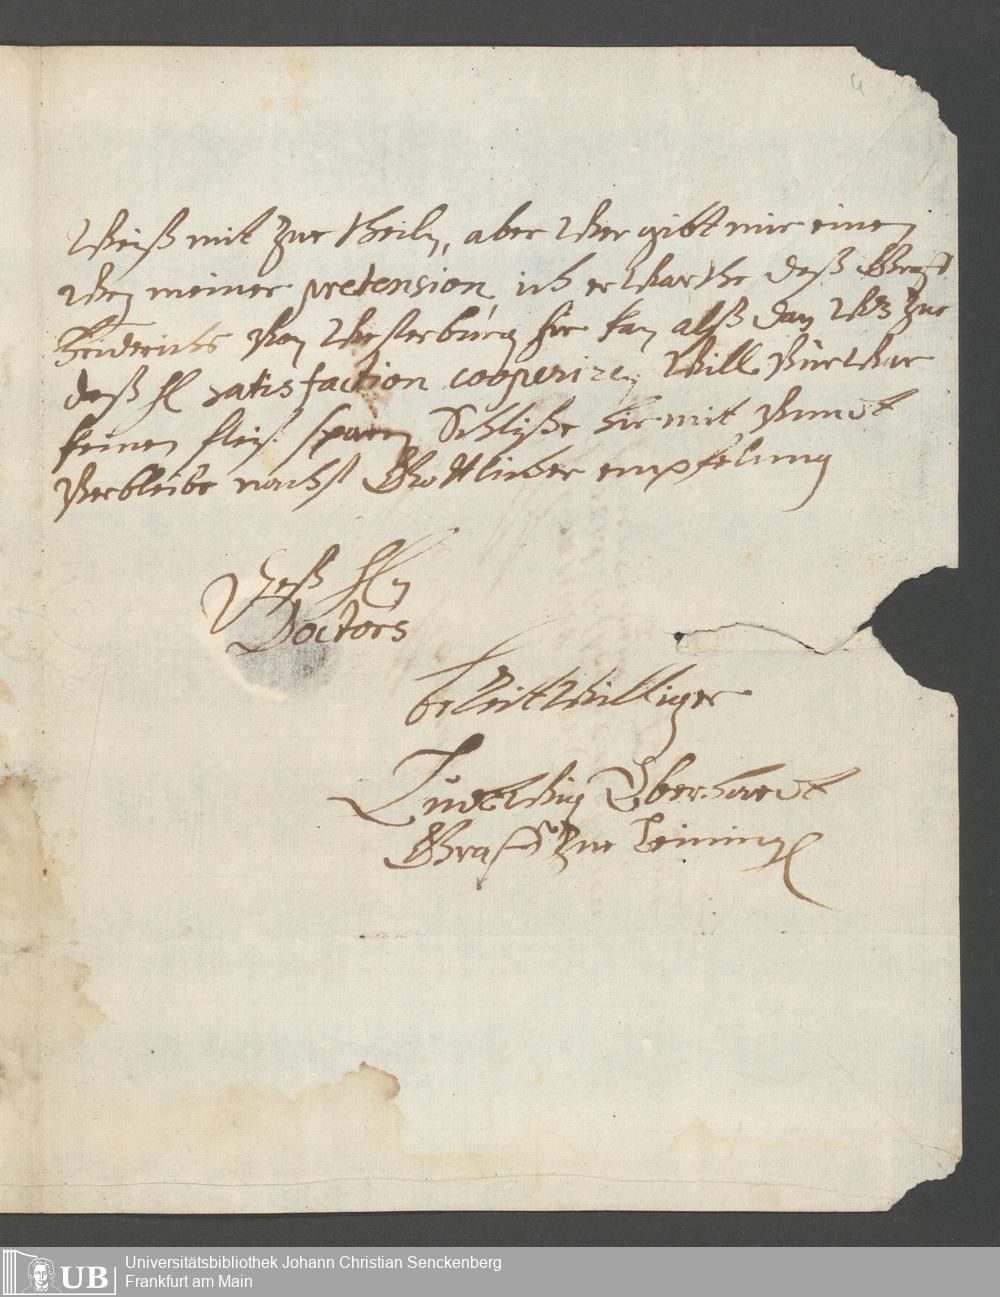 4
Weiß mit zue theiln, aber wer gibt mir einen
wen meiner pretension ich erwarthe deß Graff
friderichs von Westerburg hir kan alß dan was zue
deß H satisfaction cooperiren will vürwar
keinen fleiß sparen Schliße hirmit vnndt
verbleibe nechst Gottlicher empfelung
Deß Hn
Doctors
beReittwilliger
Ludtwig Eberhardt
Graff zue Leiningen
UB
Universitätsbibliothek Johann Christian Senckenberg
Frankfurt am Main